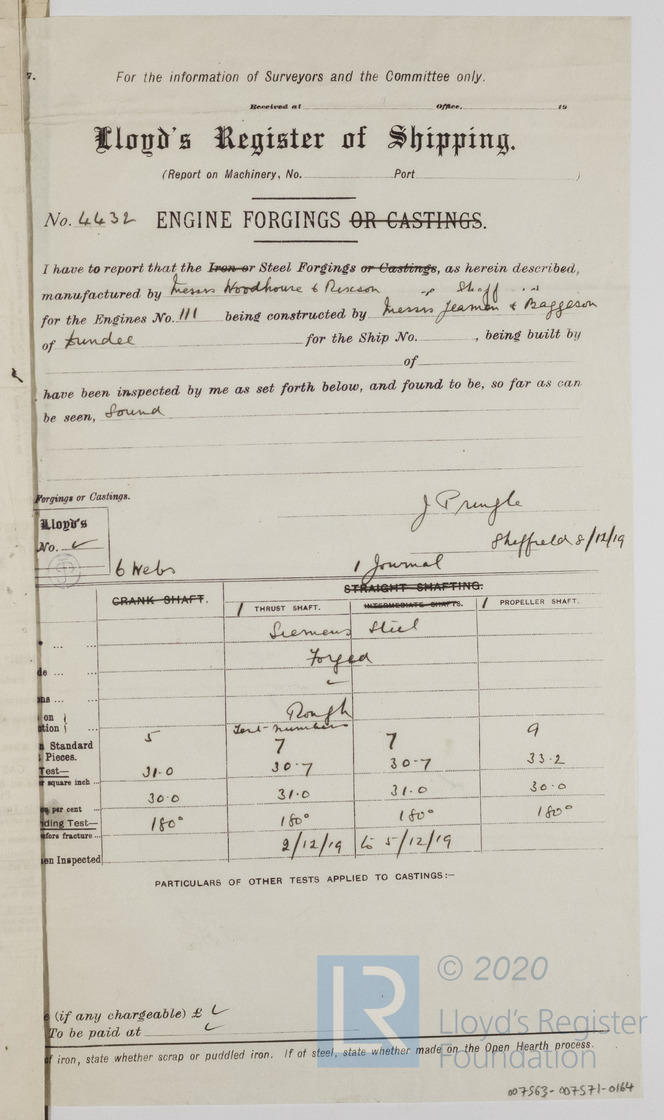 7.
For the information of Surveyors and the Committee only.
Received at Office, 19
Lloyd's Register of Shipping.
(Report on Machinery, No. Port )
No. 4432 ENGINE FORGINGS OR CASTINGS.
I have to report that the Iron or Steel Forgings or Castings, as herein described,
manufactured by Messrs Woodhouse & Rixson of Sheff
for the Engines No. 111 being constructed by Messrs Yeaman & Baggeson
of Dundee for the Ship No. , being built by
of
have been inspected by me as set forth below, and found to be, so far as can
be seen, Sound
Forgings or Castings.
J Pringle
Lloyd's
No. ✓
Sheffield 8/12/19
6 Webs 1 Journal
CRANK SHAFT. STRAIGHT SHAFTING.
1 THRUST SHAFT. INTERMEDIATE SHAFTS. 1 PROPELLER SHAFT.
Siemens Steel
Forged
✓
Rough
Test-numbers
on
tion
Standard 5 7 7 9
Pieces.
Test— 31.0 30.7 30.7 33.2
square inch
30.0 31.0 31.0 30.0
per cent
ding Test— 180° 180° 180° 180°
efore fracture
2/12/19 to 5/12/19
en Inspected
PARTICULARS OF OTHER TESTS APPLIED TO CASTINGS:—
(if any chargeable) £ ✓
To be paid at ✓
f iron, state whether scrap or puddled iron. If of steel, state whether made on the Open Hearth process.
LR
© 2020
Lloyd's Register
Foundation
007563-007571-0164